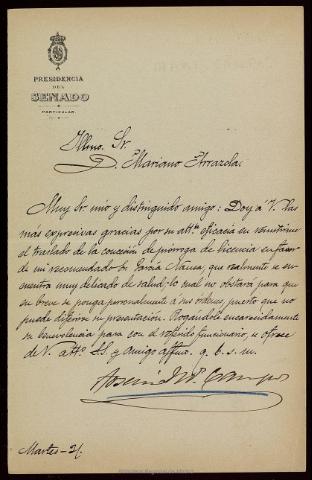 PRESIDENCIA
DEL
SENADO
PARTICULAR
Illmo. Sr.
D. Mariano Arrazola.
Muy Sr. mio y distinguido amigo: Doy a V. las
más expresivas gracias por su attª eficacia en remitirme
el traslado de la concesión de prórroga de licencia en favor
de mi recomendado Sr. García que realmente se en-
cuentra muy delicado de salud; lo cual no obstará para que
en breve se ponga personalmente a sus ordenes, puesto que no
puede diferir su presentación. Rogandole encarecidamente
su benevolencia para con el referido funcionario, se ofrece
de V. attº. S.S. y amigo affmo. q. b. s. m.
Martes-21.